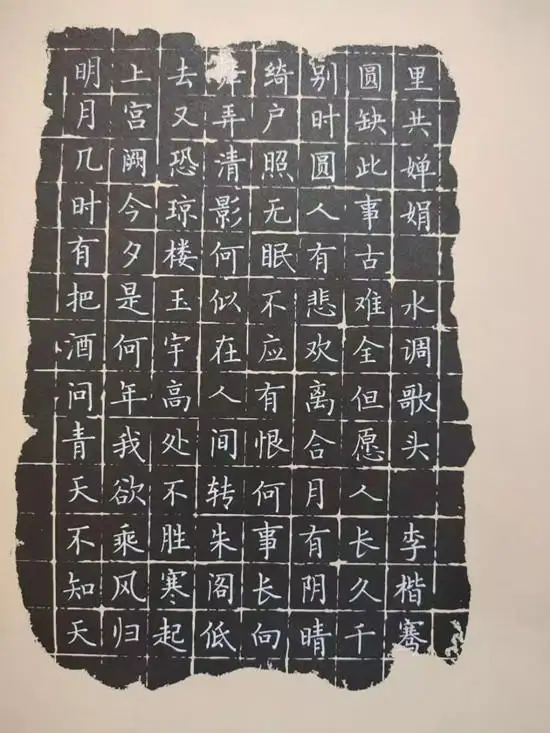 明月几时有把酒问青天不知天
上宫阙今夕是何年我欲乘风归
去又恐琼楼玉宇高处不胜寒起
舞弄清影何似在人间转朱阁低
绮户照无眠不应有恨何事长向
别时圆人有悲欢离合月有阴晴
圆缺此事古难全但愿人长久千
里共婵娟 水调歌头 李楷